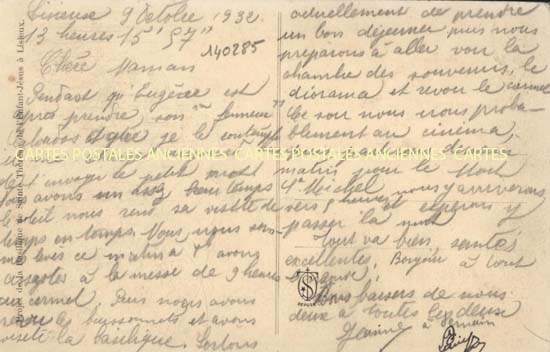 Lisieux 9 Octobre 1932.
13 heures 15' 57"
140285
Chère Maman
Pendant qu'Eugène est
près prendre son "fumeux"
tabac et je le contemple
je t'envoye ce petit mot
avons un assez beau temps
le soleil nous rend sa visite de
temps en temps. Nous nous sommes
levés ce matin à et avons
assister à la messe de 9 heures
au carmel. Puis nous avons
revu les buissonnets et avons
visité la basilique. Sortons
actuellement de prendre
un bon déjeuner puis nous
préparons à aller voir la
chambre des souvenirs, le
diorama et revoir le carmel
Ce soir nous irons proba-
blement au cinéma,
matin pour le Mont
St Michel nous y arriverons
vers 9 heures et espérons y
passer la nuit
Tout va bien, santés
excellentes, Bonjour à tout
Bons baisers de nous
deux à toutes les deux
Germain
CARTES POSTALES ANCIENNES CARTES POSTALES ANCIENNES CARTES POSTALES ANCIENNES
Projet de la Basilique de Sainte Thérèse de l'Enfant-Jésus à Lisieux.